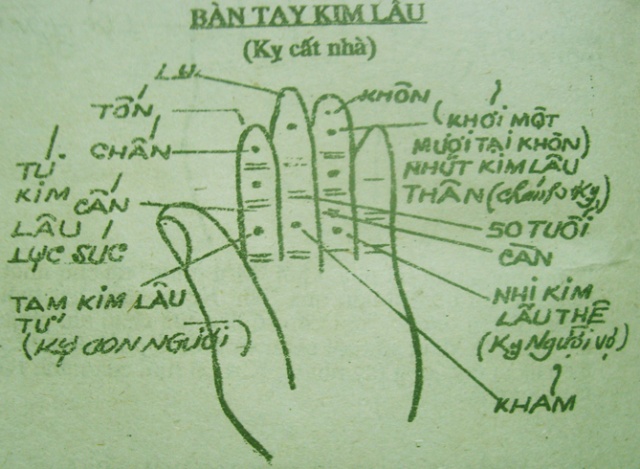 BÀN TAY KIM LÂU
(Kỵ cất nhà)
LY
TỐN
CHẤN
TỨ
KIM
LÂU
LỤC SÚC
CẤN
TAM KIM LÂU
TỬ
(KỴ CON NGƯỜI)
KHÔN
(KHỞI MỘT
MƯƠI TẠI KHÔN)
NHỨT KIM LÂU
THÂN (chánh kỵ)
50 TUỔI
CÀN
NHỊ KIM
LÂU THÊ
(Kỵ Người vợ)
KHẢM